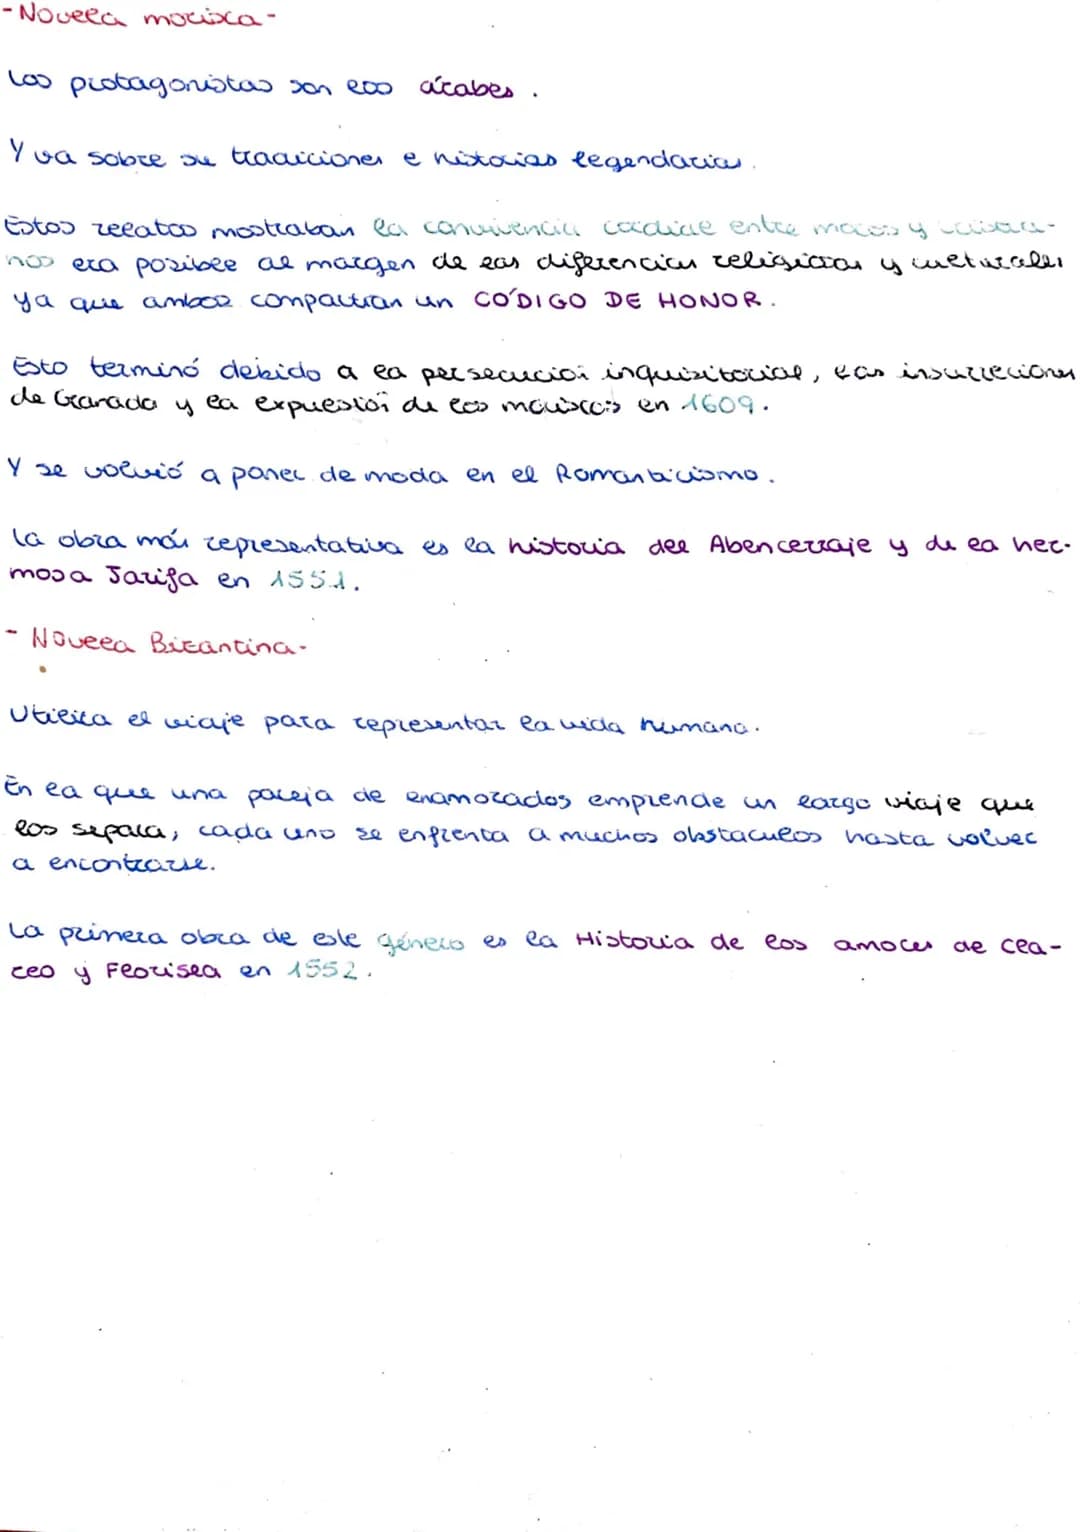 - Novela morisca -
Los protagonistas son los árabes.
Y va sobre su tradiciones e historias legendarias.
Estos relatos mostraban la convivencia cordial entre moros y cristia-
nos era posible al margen de las diferencias religiosas y culturales
ya que ambos compartían un CÓDIGO DE HONOR.
Esto terminó debido a la persecución inquisitorial, las insurreciones
de Granada y la expulsión de los moriscos en 1609.
Y se volvió a poner de moda en el Romanticismo.
La obra más representativa es la historia del Abencerraje y de la her-
mosa Jarifa en 1551.
- Novela Bizantina -
Utiliza el viaje para representar la vida humana.
En la que una pareja de enamorados emprende un largo viaje que
los separa, cada uno se enfrenta a muchos obstaculos hasta volver
a encontrarse.
La primera obra de este género es la Historia de los amores de Cla-
reo y Florisea en 1552.